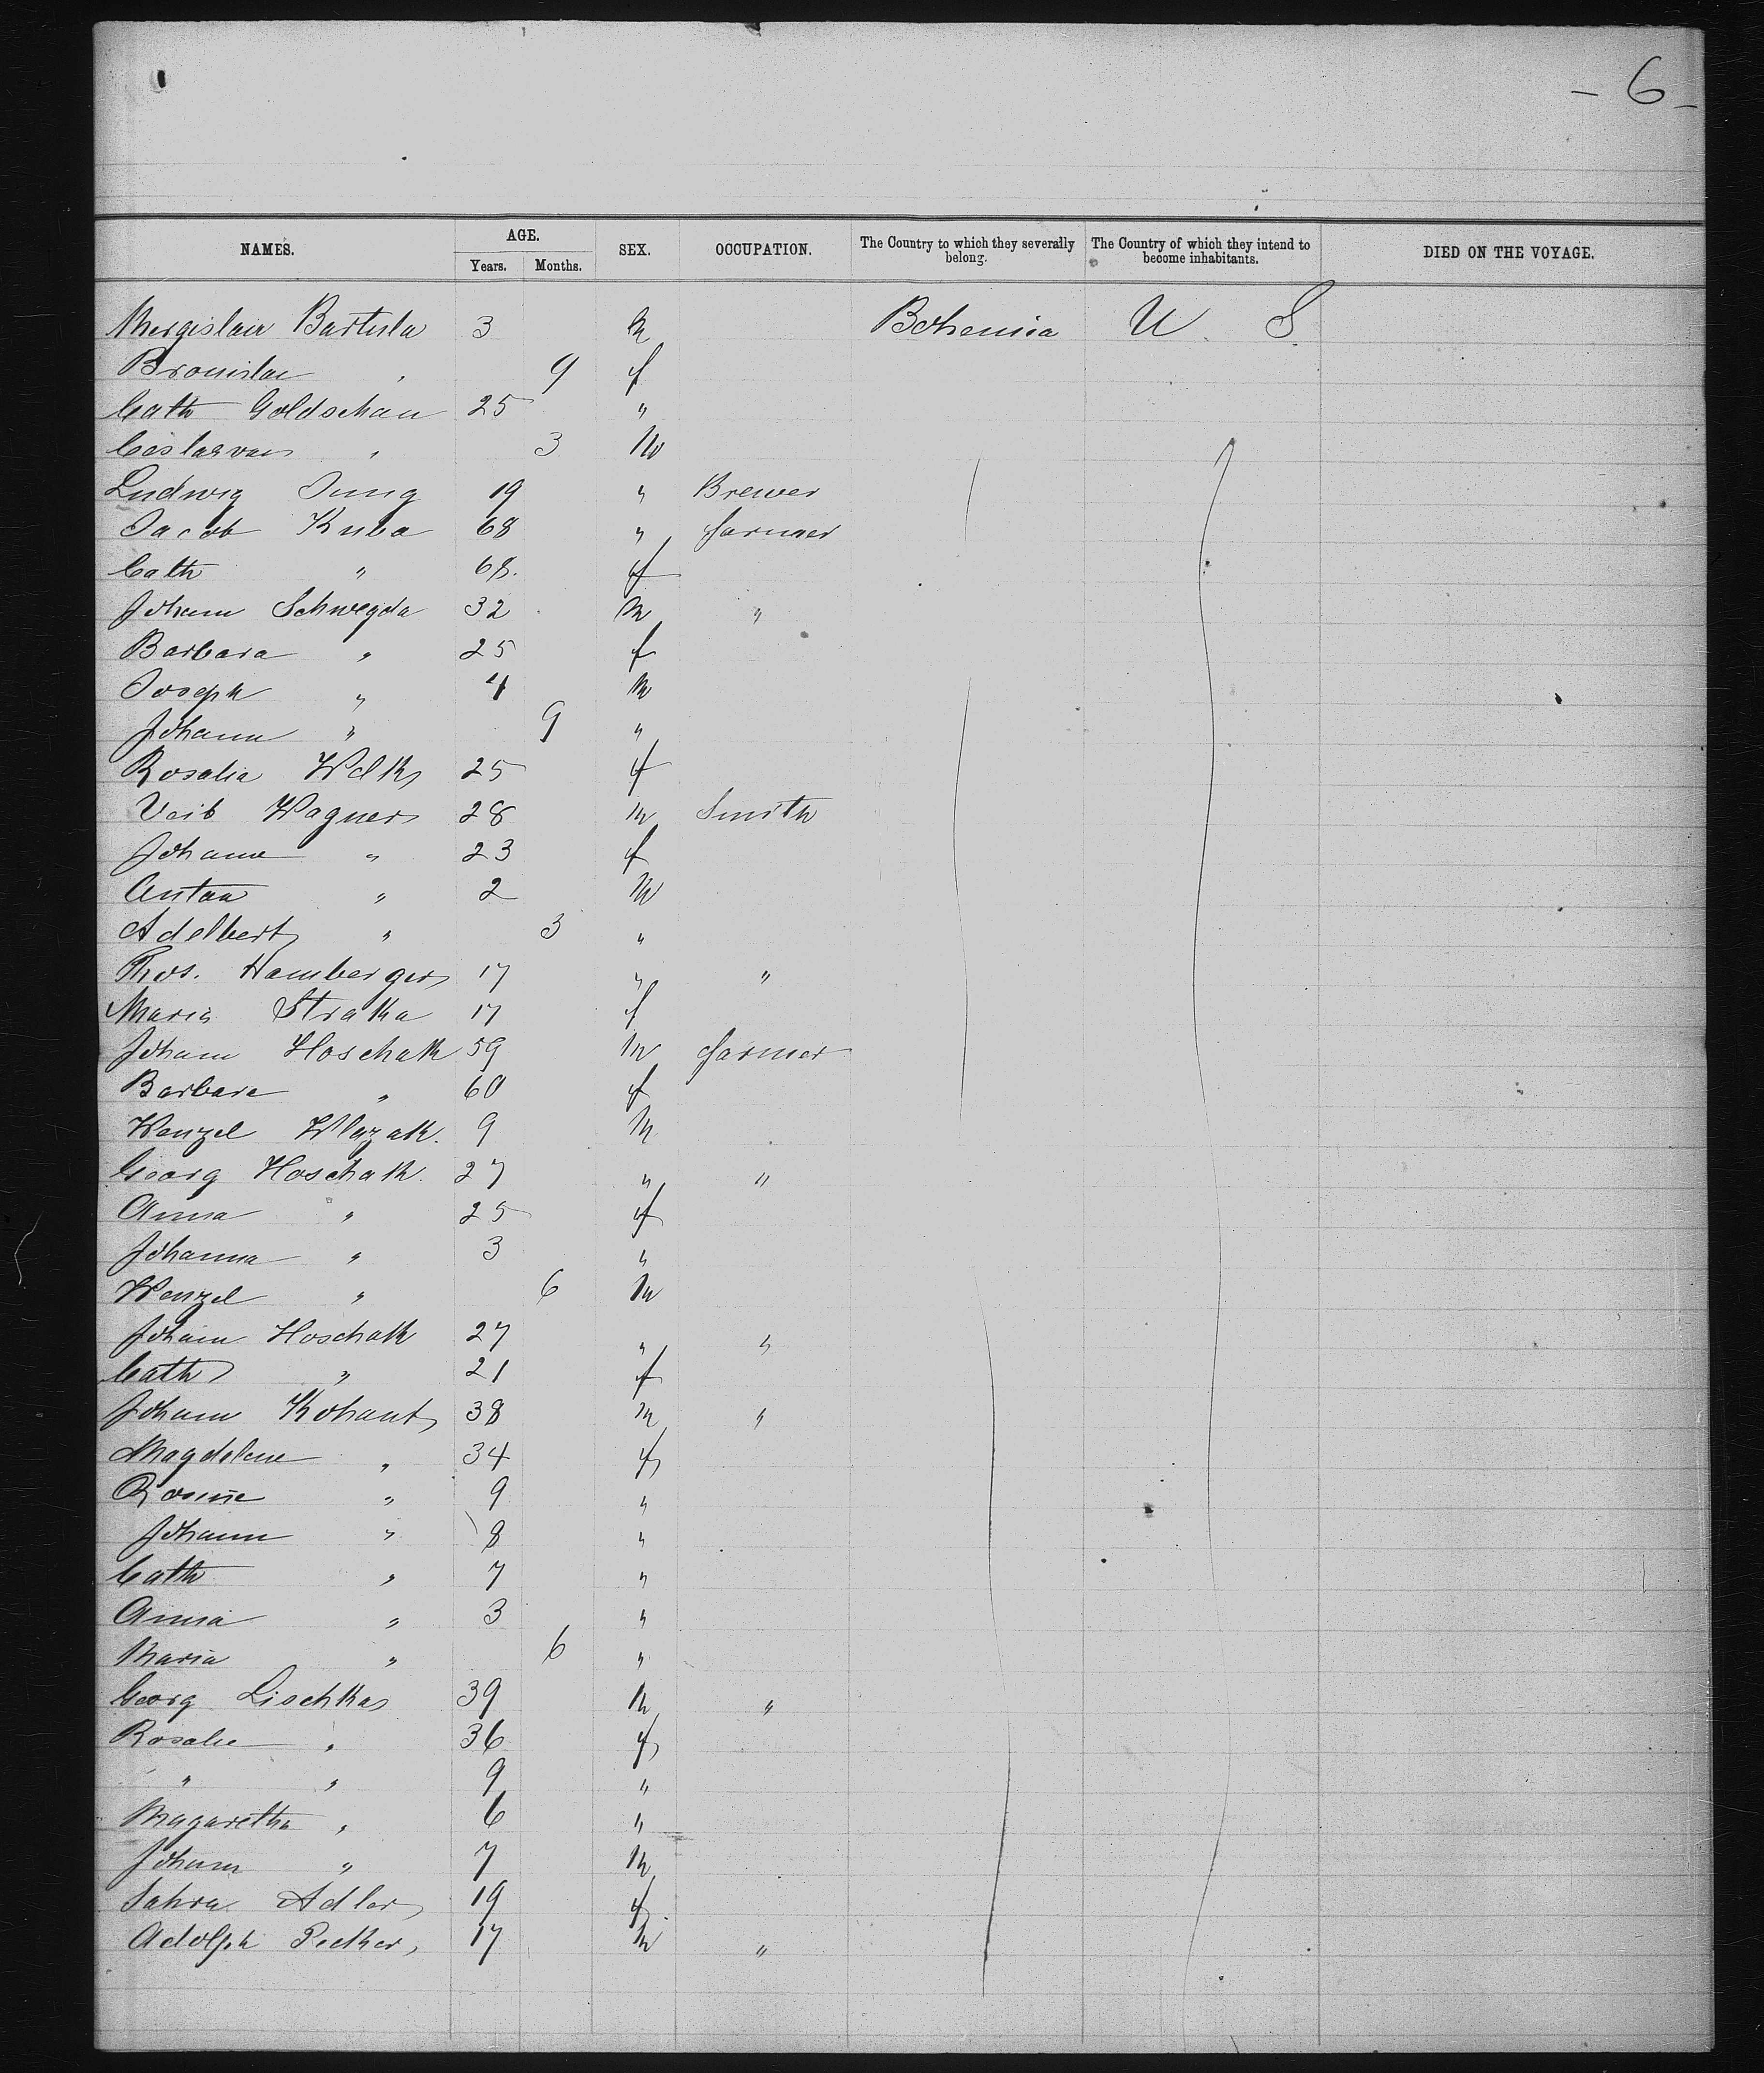 - 6 -
NAMES. AGE. SEX. OCCUPATION. The Country to which they severally belong. The Country of which they intend to become inhabitants. DIED ON THE VOYAGE.
Years. Months.
Bartula 3 m Bohemia U. S.
Bronislav " 9 f
Cath Goldschau 25 "
" 3 m
Ludwig Jung 19 " Brewer
Jacob Kuba 68 " farmer
Cath " 68. f
Johann Schwegda 32 m "
Barbara " 25 f
Joseph " 4 m
Johann " 9 "
Rosalia 25 f
Veit Wagner 28 m Smith
Johana " 23 f
Anton " 2 m
Adelbert " 3 "
Thos. Hamberger 17 " "
Maria Straka 17 f
Johann Hoschak 59 m farmer
Barbara " 60 f
Wenzel Wlyzak. 9 m
Georg Hoschak. 27 " "
Anna " 25 f
Johanna " 3 "
Wenzel " 6 m
Johann Hoschak 27 " "
Cath " 21 f
Johann Kohaut 38 m "
Magdalene " 34 f
Rosine " 9 "
Johann " 8 "
Cath " 7 "
Anna " 3 "
Maria " 6 "
Georg Lischka 39 m "
Rosalie " 36 f
" " 9 "
Magaretha " 6 "
Johann " 7 m
Sahra Adler 19 f
Adolph Pecker, 17 m "